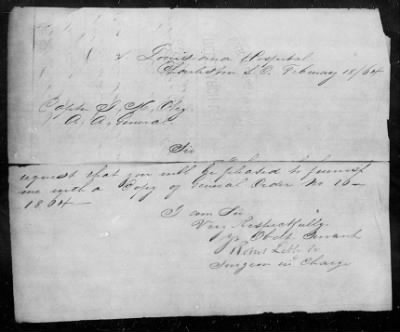 Louisiana Hospital
Charleston S.C. February 18/64
Captn
A. A. General
Sir
request that you will be pleased to furnish
me with a Copy of General Order No 10 —
1864 —
I am Sir
Very Respectfully
Yr Obdt Servant
Surgeon in Charge